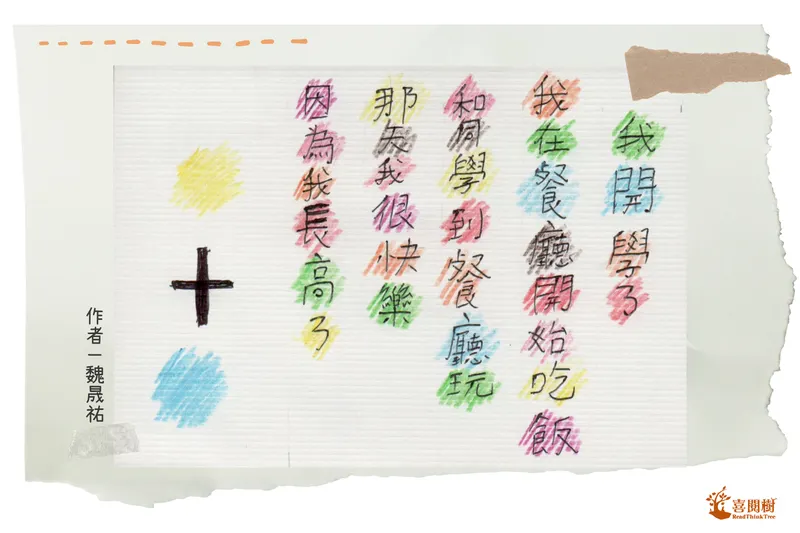 我開學了
我在餐廳開始吃飯
和同學到餐廳玩
那天我很快樂
因為我長高了
作者－魏晟祐
喜閱樹
ReadThinkTree